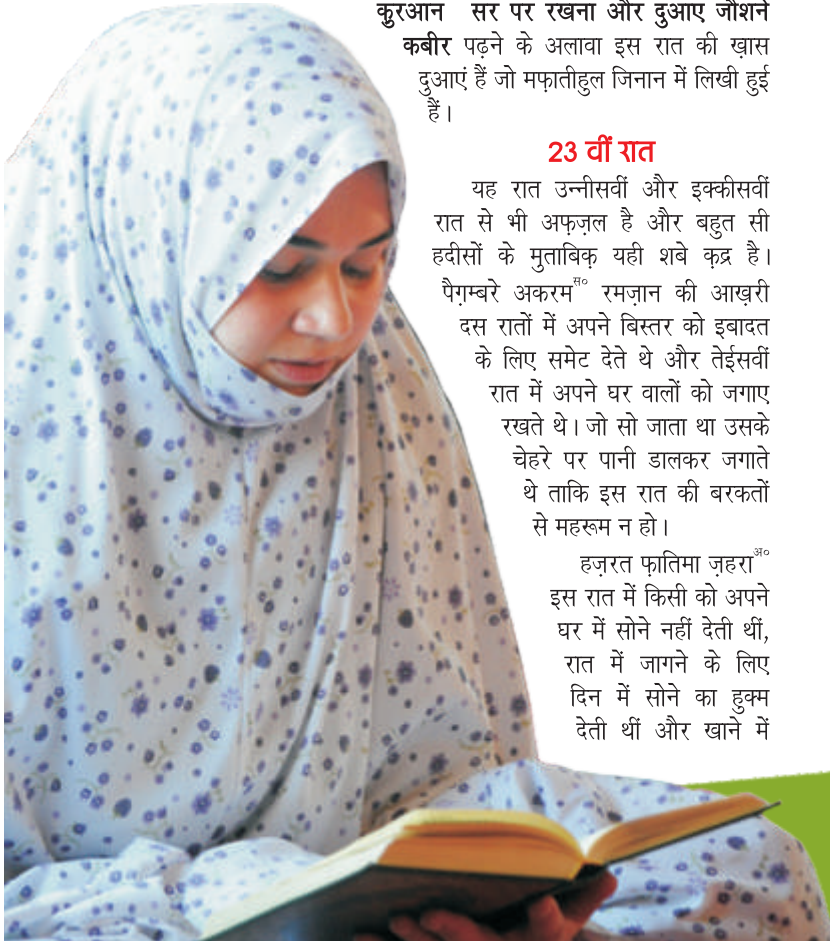 कुरआन सर पर रखना और दुआए जौशने
कबीर पढ़ने के अलावा इस रात की ख़ास
दुआएं हैं जो मफ़ातीहुल जिनान में लिखी हुई
हैं।
23 वीं रात
यह रात उन्नीसवीं और इक्कीसवीं
रात से भी अफ़ज़ल है और बहुत सी
हदीसों के मुताबिक़ यही शबे क़द्र है।
पैग़म्बरे अकरमस० रमज़ान की आख़री
दस रातों में अपने बिस्तर को इबादत
के लिए समेट देते थे और तेईसवीं
रात में अपने घर वालों को जगाए
रखते थे। जो सो जाता था उसके
चेहरे पर पानी डालकर जगाते
थे ताकि इस रात की बरकतों
से महरूम न हो।
हज़रत फ़ातिमा ज़हराअ०
इस रात में किसी को अपने
घर में सोने नहीं देती थीं,
रात में जागने के लिए
दिन में सोने का हुक्म
देती थीं और खाने में